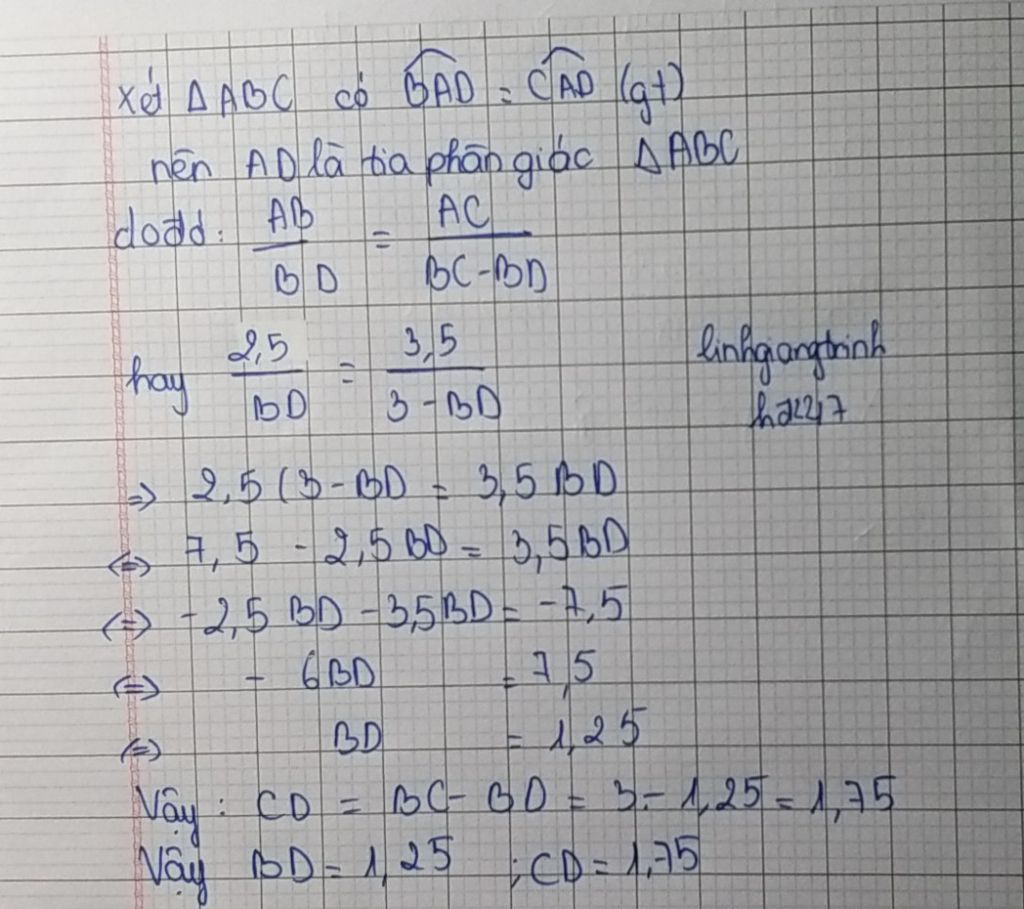 Xét ΔABC có BAD = CAD (gt)
nên AD là tia phân giác ΔABC
do đó: AB/BD = AC/BC-BD
hay 2,5/BD = 3,5/3-BD
linhgiangtrinh
⇒ 2,5(3-BD = 3,5BD
⇔ 7,5 - 2,5BD = 3,5BD
⇔ -2,5BD - 3,5BD = -7,5
⇔ - 6BD = 7,5
⇔ BD = 1,25
Vậy: CD = BC - BD = 3 - 1,25 = 1,75
Vậy BD = 1,25 ; CD = 1,75